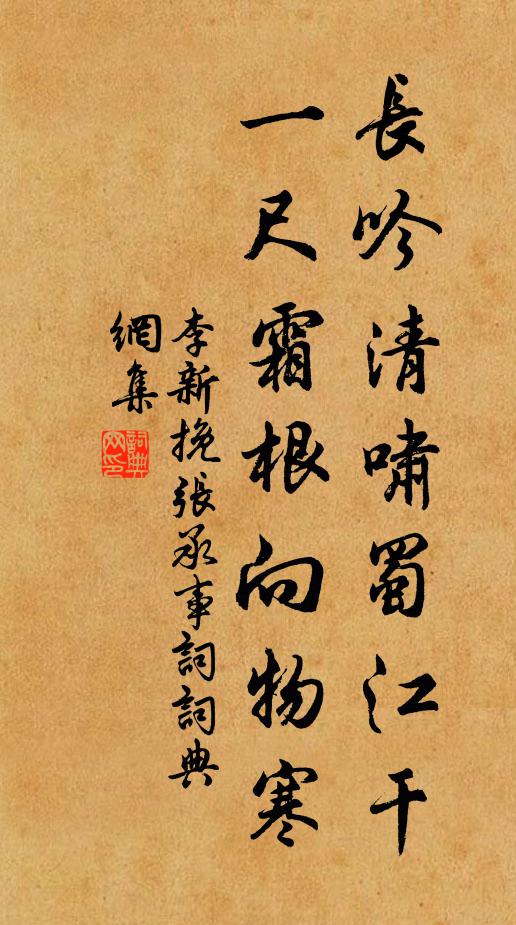 長吟清嘯蜀江干
一尺霜根向物寒
李新挽張承事詞詞典
網集
詞典
网印